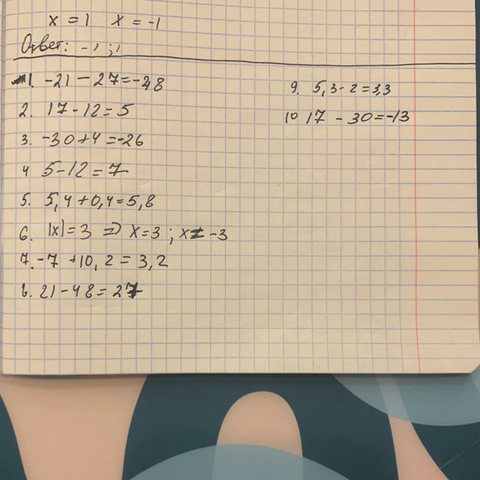 x = 1 x = -1
Ответ: -1 ; 1
1. -21 - 27 = -48
2. 17 - 12 = 5
3. -30 + 4 = -26
4 5 - 12 = 7
5. 5,4 + 0,4 = 5,8
6. |x| = 3 => x = 3 ; x = -3
7. -7 + 10,2 = 3,2
8. 21 - 48 = 27
9. 5,3 - 2 = 3,3
10 17 - 30 = -13